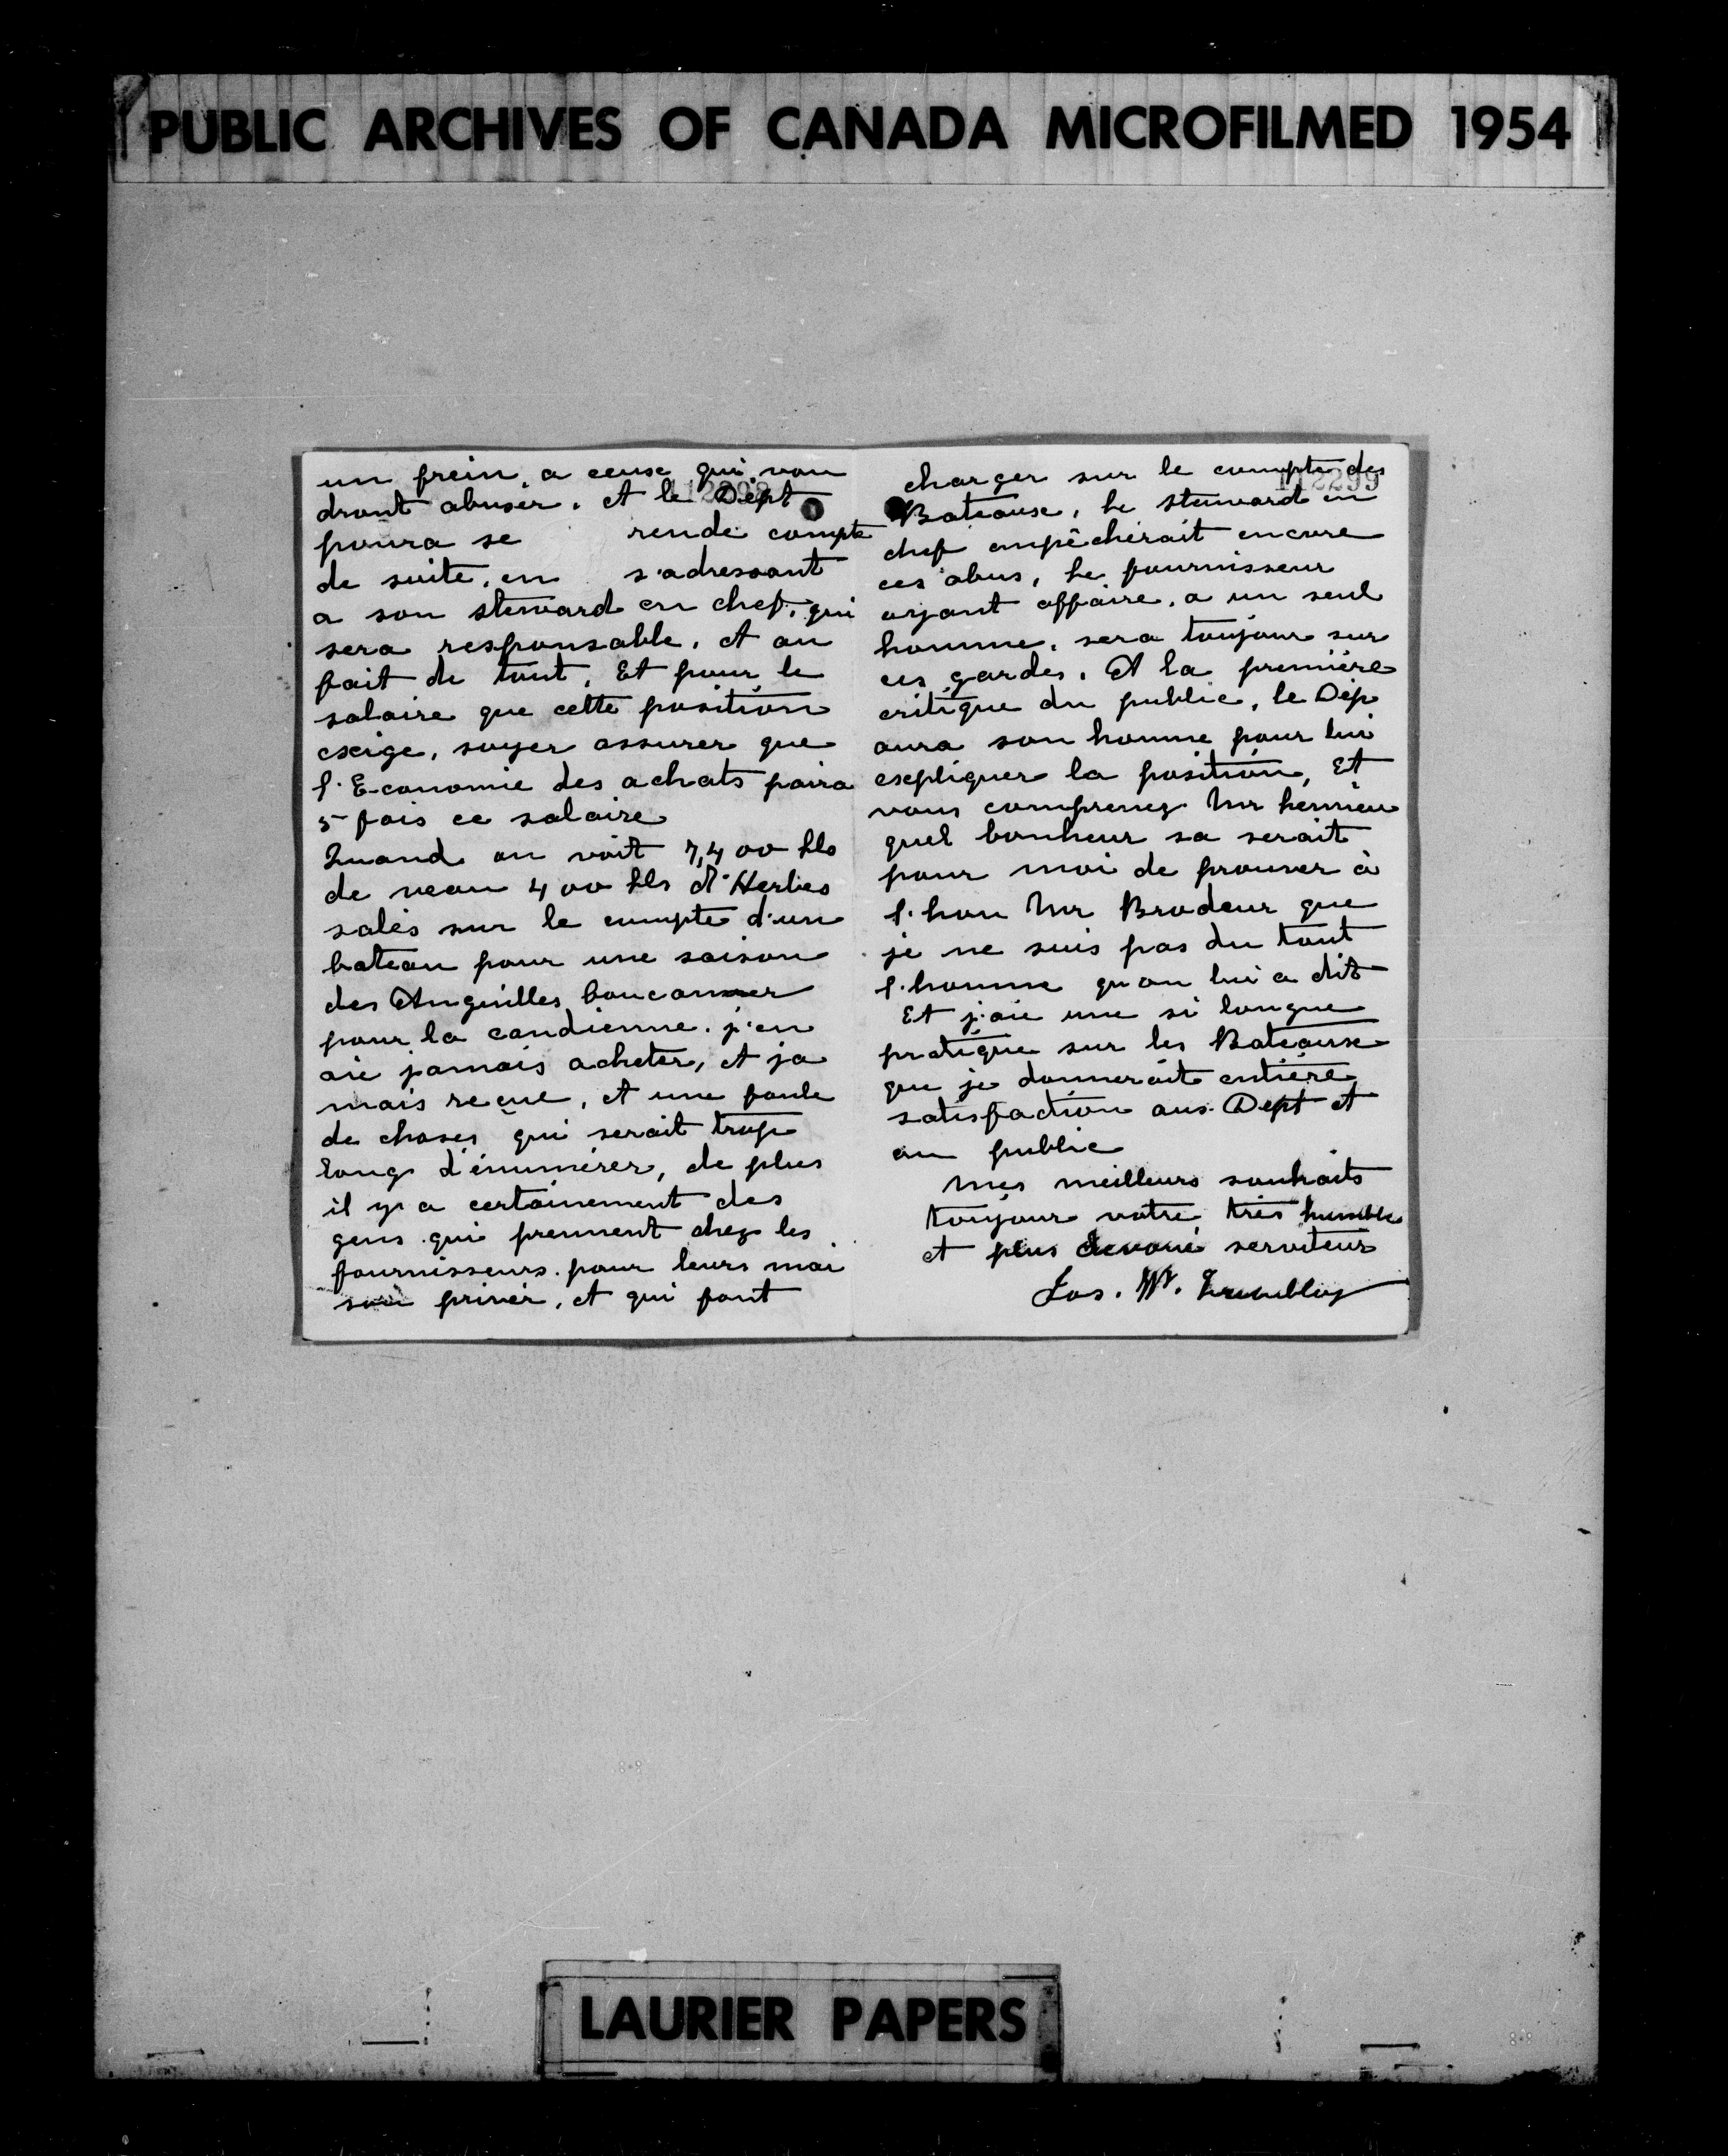 PUBLIC ARCHIVES OF CANADA MICROFILMED 1954
un frein, a ceuse qui vou
dront abuser. et le Dept
poura se rende compte
de suite, en s'adressant
a son steward en chef, qui
sera responsable, et au
fait de tout, Et pour le
salaire que cette position
exige, soyer assurer que
l'Economie des achats paira
5 fois ce salaire
Quand on voit 7,400 lbs
de veau 400 lbs d'Herbes
salés sur le compte d'un
bateau pour une saison
des Anguilles boucanner
pour la candienne. j'en
aie jamais acheter, et ja
mais reçue, et une foule
de choses qui serait trop
long d'énumérer, de plus
il y a certainement des
gens qui prennent chez les
fournisseurs pour leurs mai
son priver, et qui font
112299
charger sur le compte des
Bateause, le steward en
chef empêcherait encore
ces abus, le fournisseur
ayant affaire, a un seul
homme, sera toujour sur
ces gardes. Et la première
critique du public, le Dép
aura son homme pour lui
expliquer la position, Et
vous comprenez Mr
quel bonheur sa serait
pour moi de prouver à
l'hon Mr Brodeur que
je ne suis pas du tout
l'homme qu'on lui a dit
Et j'aie une si longue
pratique sur les Bateause
que je donnerait entière
satisfaction aus Dept et
au public
Mes meilleurs souhaits
toujour votre très humble
et plus devoué serviteur
Jos. W. Tremblay
LAURIER PAPERS